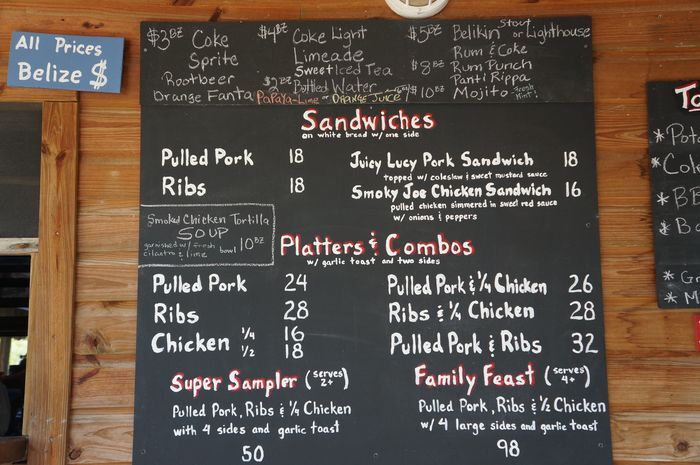 All Prices
Belize $
$3 BZ Coke
Sprite
Rootbeer
Orange Fanta
$4 BZ Coke Light
Limeade
Sweet Iced Tea
$2 BZ Bottled Water
Papaya-Lime or Orange Juice
$5 BZ Belikin Stout or Lighthouse
Rum & Coke
$8 BZ Rum Punch
Panti Rippa
$10 BZ Mojito Fresh Mint!
Sandwiches
on white bread w/ one side
Pulled Pork 18
Ribs 18
Juicy Lucy Pork Sandwich 18
topped w/ coleslaw & sweet mustard sauce
Smoky Joe Chicken Sandwich 16
pulled chicken simmered in sweet red sauce
w/ onions & peppers
Smoked Chicken Tortilla
SOUP
garnished w/ fresh
cilantro & lime
bowl 10 BZ
Platters & Combos
w/ garlic toast and two sides
Pulled Pork 24
Ribs 28
Chicken 1/4 16
1/2 18
Pulled Pork & 1/4 Chicken 26
Ribs & 1/4 Chicken 28
Pulled Pork & Ribs 32
Super Sampler (serves 2+)
Pulled Pork, Ribs & 1/4 Chicken
with 4 sides and garlic toast
50
Family Feast (serves 4+)
Pulled Pork, Ribs & 1/2 Chicken
w/ 4 large sides and garlic toast
98